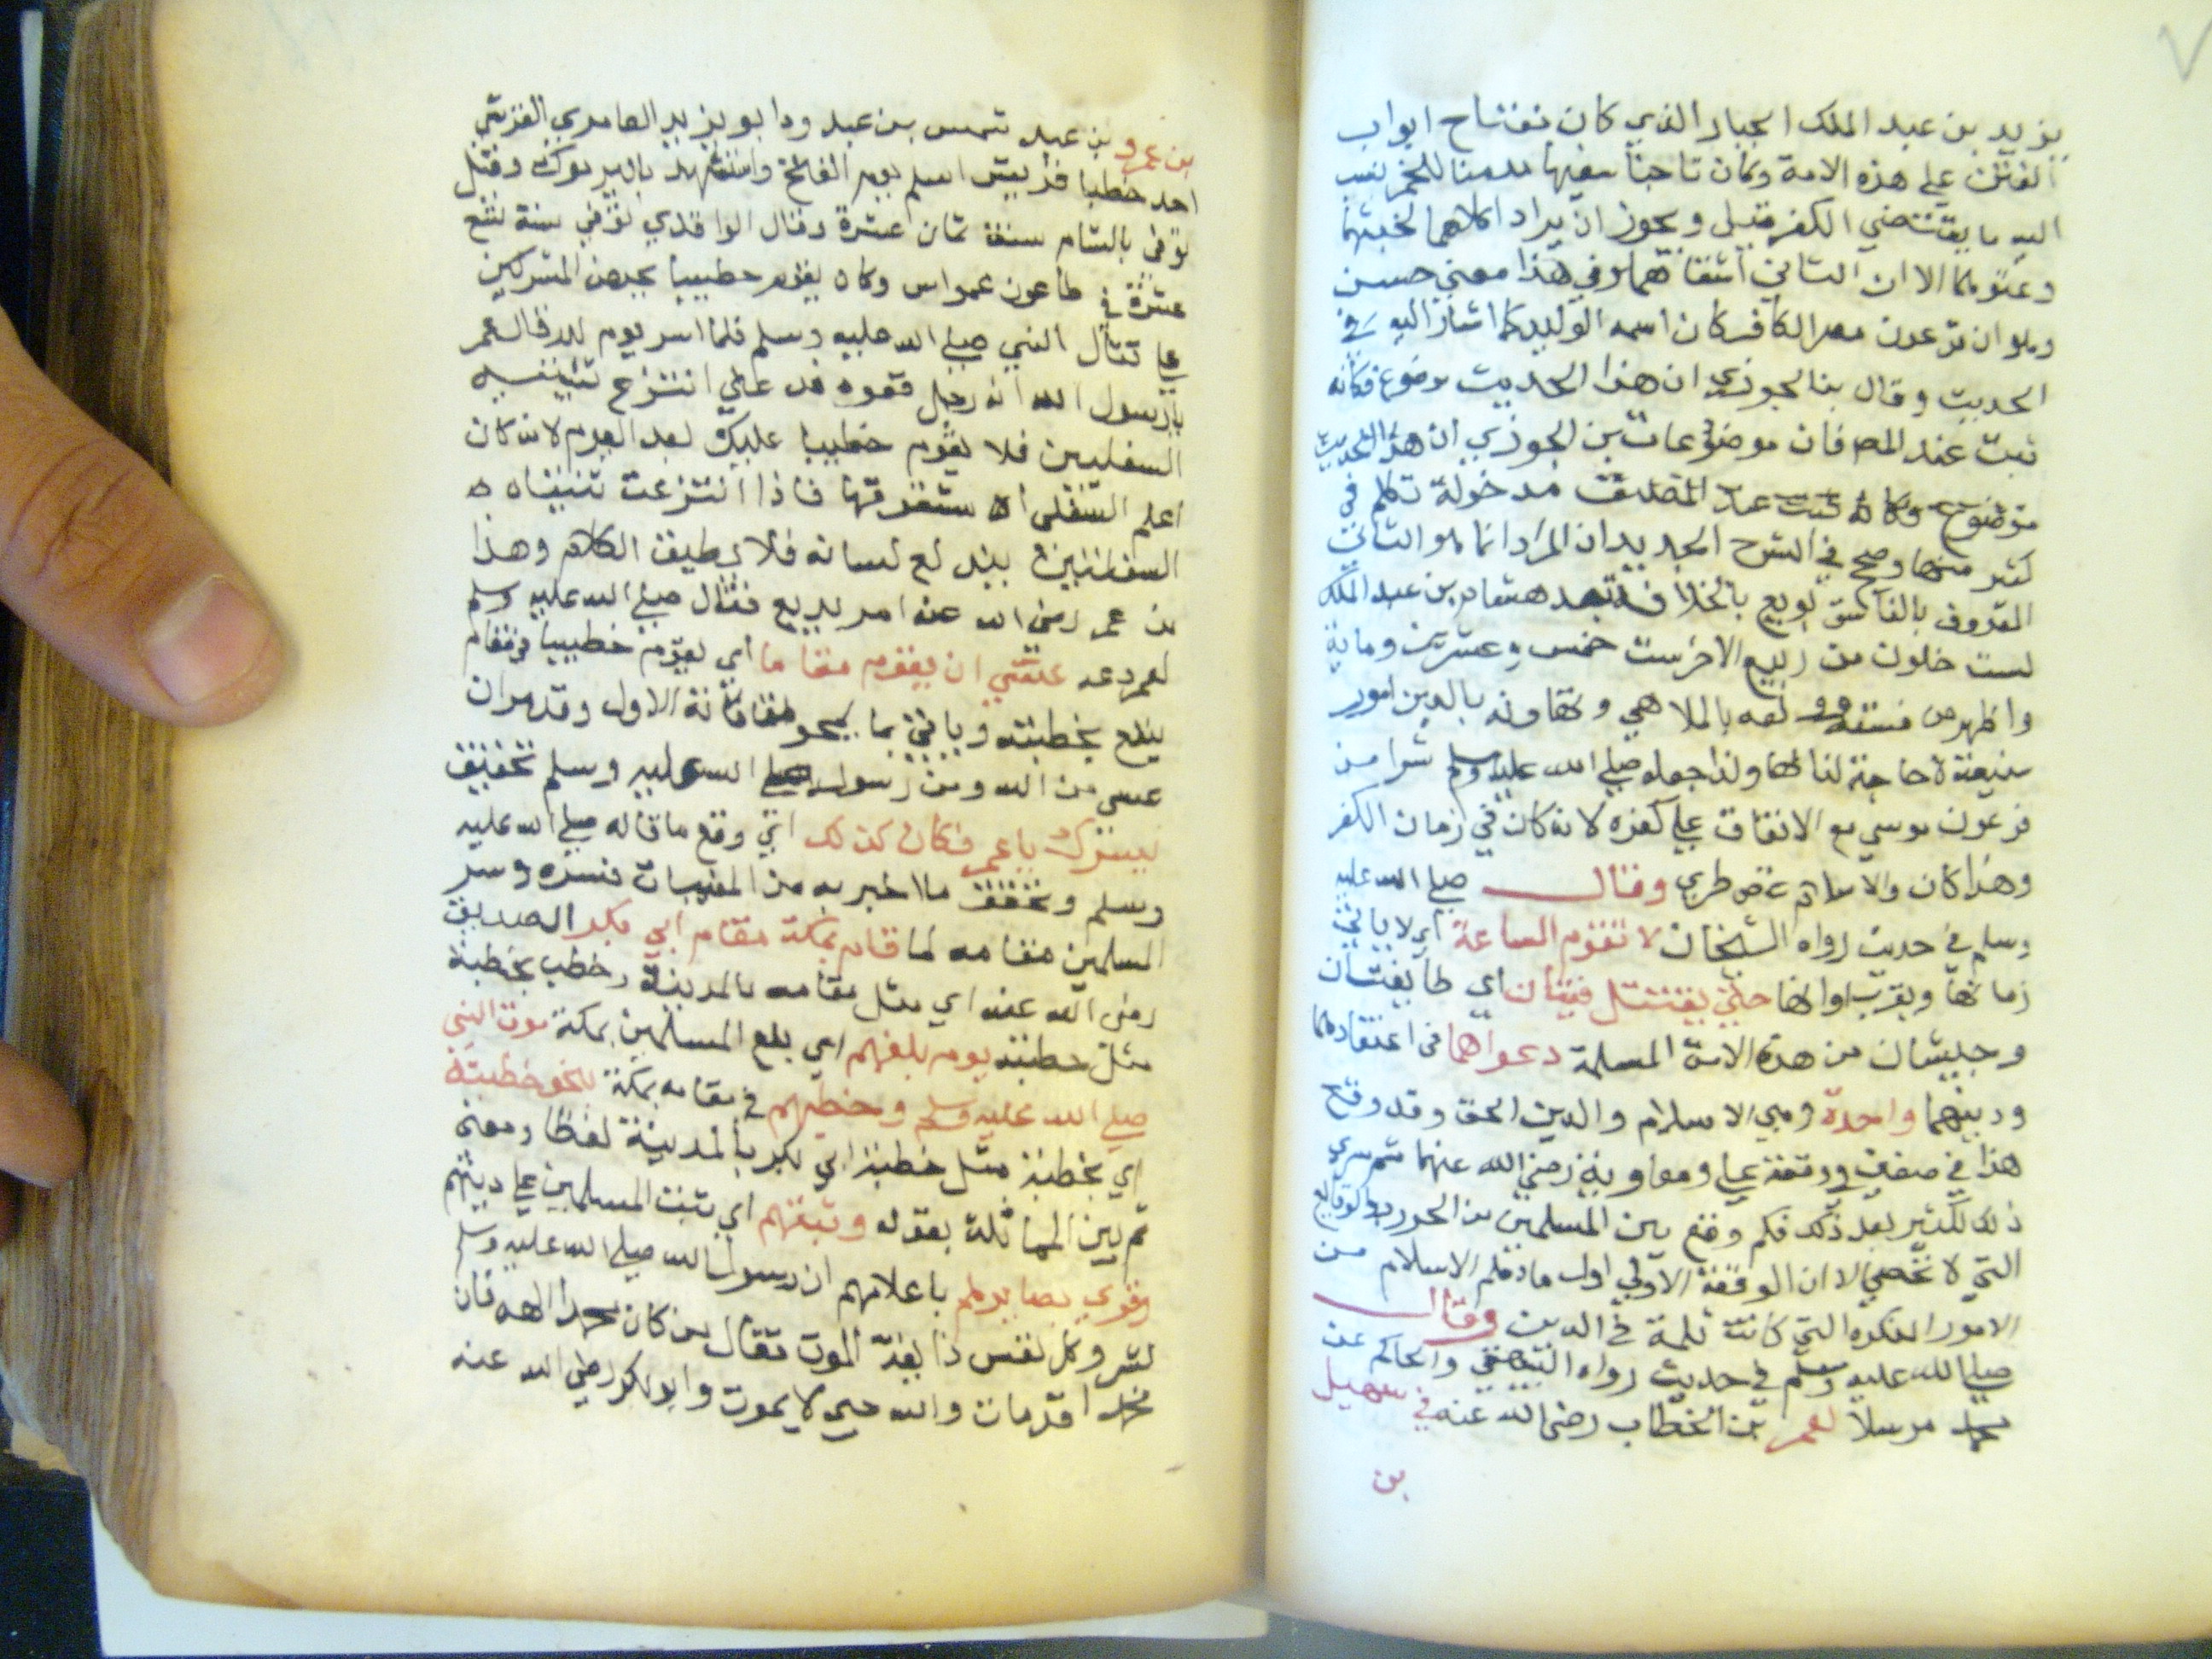 يزيد بن عبد الملك الجبار الذي كان نفتتاح ابواب
الفتن علي هذه الامة وكان تاجنا سفيها مدمنا للخمر نسب
اليه ما يقتضي الكفر قيل ويجوز ان يراد كلاهما لخبثهما
وعتوهما الا ان الثاني اشقاهما وفي هذا معني حسن
وهو ان فرعون مصر الكافر كان اسمه الوليد كما اشار اليه في
الحديث وقال بنا لجوزي ان هذا الحديث موضوع فكانه
ثبت عند المص فان موضوعات بن الجوزي ان هذا الحديث
موضوع وكانه ثبت عند المصنف مدخولة تكلم في
كثير منها وصحح في الشرح الجديد ان المراد انما هو الثاني
المعروف بالفاسق بويع بالخلافة بعد هشام بن عبد الملك
لست خلون من ربيع الاخر سنة خمس وعشرين وماية
واظهر من فسقه وولعه بالملاهي وتهاونه بالدين امور
شنيعة لا حاجة لنا لها ولذا جعله صلي الله عليه وسلم شرا من
فرعون موسي مع الاتفاق علي كفره لانه كان في زمان الكفر
وهذا كان والاسلام غض طري وقال صلي الله عليه
وسلم في حديث رواه الشيخان لا تقوم الساعة اي لا ياتي
زمانها ويقرب اوانها حتي يقتتل فيتان اي طايفتان
وجيشان من هذه الامة المسلمة دعواهما في اعتقادهما
ودينهما واحدة وهي الاسلام والدين الحق وقد وقع
هذا في صفين في وقعة علي ومعاوية رضي الله عنهما ثم سري
ذلك لكثير بعد ذلك فكم وقع بين المسلمين من الحروب والوقايع
التي لا تحصي الا ان الوقعة الاولي اول ما دهم الاسلام من
الامور المنكره التي كانت ثلمة في الدين وقال
صلي الله عليه وسلم في حديث رواه البيهقي والحاكم عن
محمد مرسلا لعمر بن الخطاب رضي الله عنه في سهيل
بن
بن عمرو بن عبد شمس بن عبد ود ابو يزيد العامري القرشي
احد خطبا قريش اسلم يوم الفتح واستشهد باليرموك وقيل
توفي بالشام سنة ثمان عشرة وقال الواقدي توفي سنة تسع
عشرة في طاعون عمواس وكان يقوم خطيبا يحرض المشركين
علي قتال النبي صلي الله عليه وسلم فلما اسر يوم بدر قال عمر
يا رسول الله انه رجل مفوه فدعني انتزع ثنيتيه
السفليين فلا يقوم خطيبا عليك بعد اليوم لانه كان
اعلم السفلي اه فاذا انتزعت ثنيتاه ه
السفلتين يندلع لسانه فلا يطيق الكلام وهذا
من عمر رضي الله عنه امر بديع فقال صلي الله عليه وسلم
لعمر دعه عسي ان يقوم مقاما اي يقوم خطيبا في مقام
ينفع بخطبته وياتي بما يمحو مقاماته الاول وقد مر ان
عسي من الله ومن رسوله صلي الله عليه وسلم تحقيق
يسرك يا عمر فكان كذلك اي وقع ما قاله صلي الله عليه
وسلم وتحقق ما اخبر به من المغيبات فسره وسر
المسلمين مقامه لما قام بمكة مقام ابي بكر الصديق
رضي الله عنه اي مثل مقامه بالمدينة وخطب بخطبة
مثل خطبته يوم بلغهم اي بلغ المسلمين بمكة موت النبي
صلي الله عليه وسلم وخطبهم في مقامه بمكة بنحو خطبته
اي بخطبة مثل خطبة ابي بكر بالمدينة لفظا ومعني
ثم بين المماثلة بقوله وثبتهم اي يثبت المسلمين علي دينهم
وقوي بصايرهم باعلامهم ان رسول الله صلي الله عليه وسلم
بشر وكل نفس ذايقة الموت فقال من كان محمد الهه فان
محمدا قد مات والله حي لا يموت وابو بكر رضي الله عنه